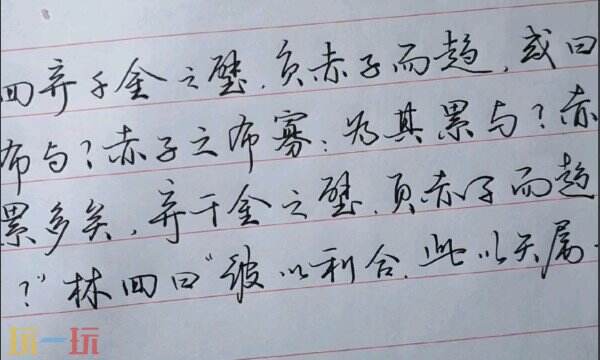 回弃千金之璧,负赤子而趋,或曰
布与?赤子之布寡;为其累与?赤
累多矣,弃千金之璧,负赤子而趋
?”林回曰“彼以利合,此以天属.
玩一玩